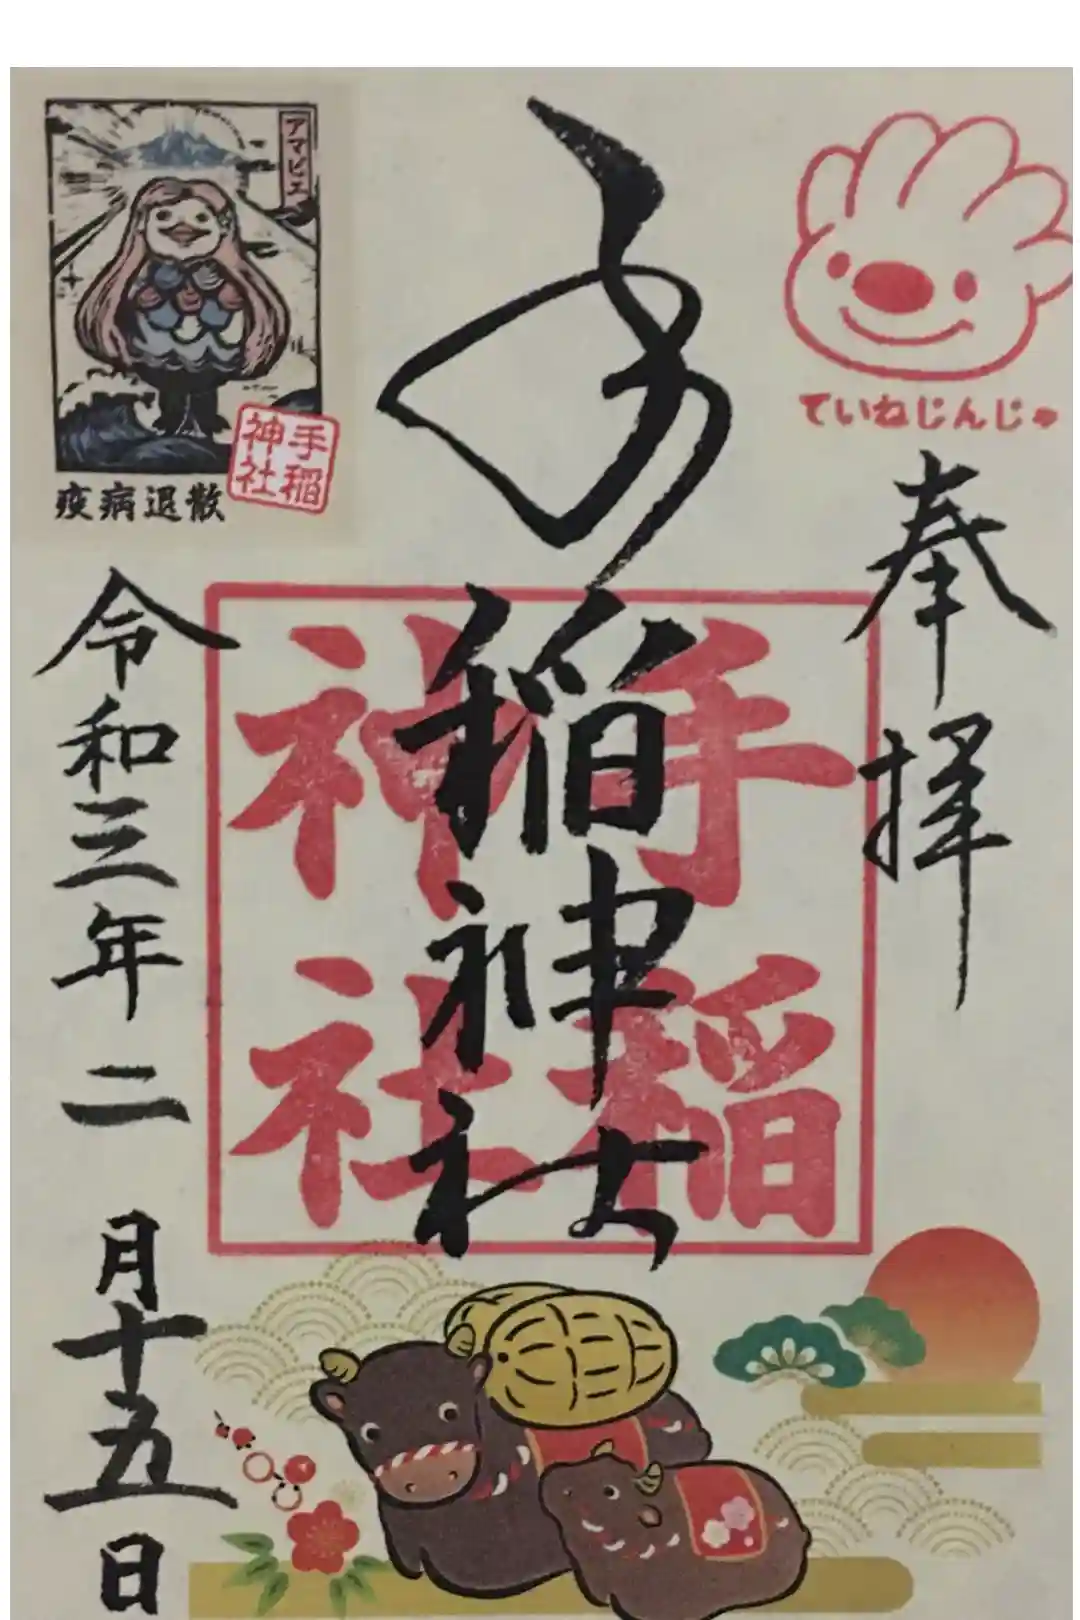 ていねじんじゃ
奉拝
手稲神社
手稲
神社
アマビエ
手稲
神社
疫病退散
令和三年二月十五日